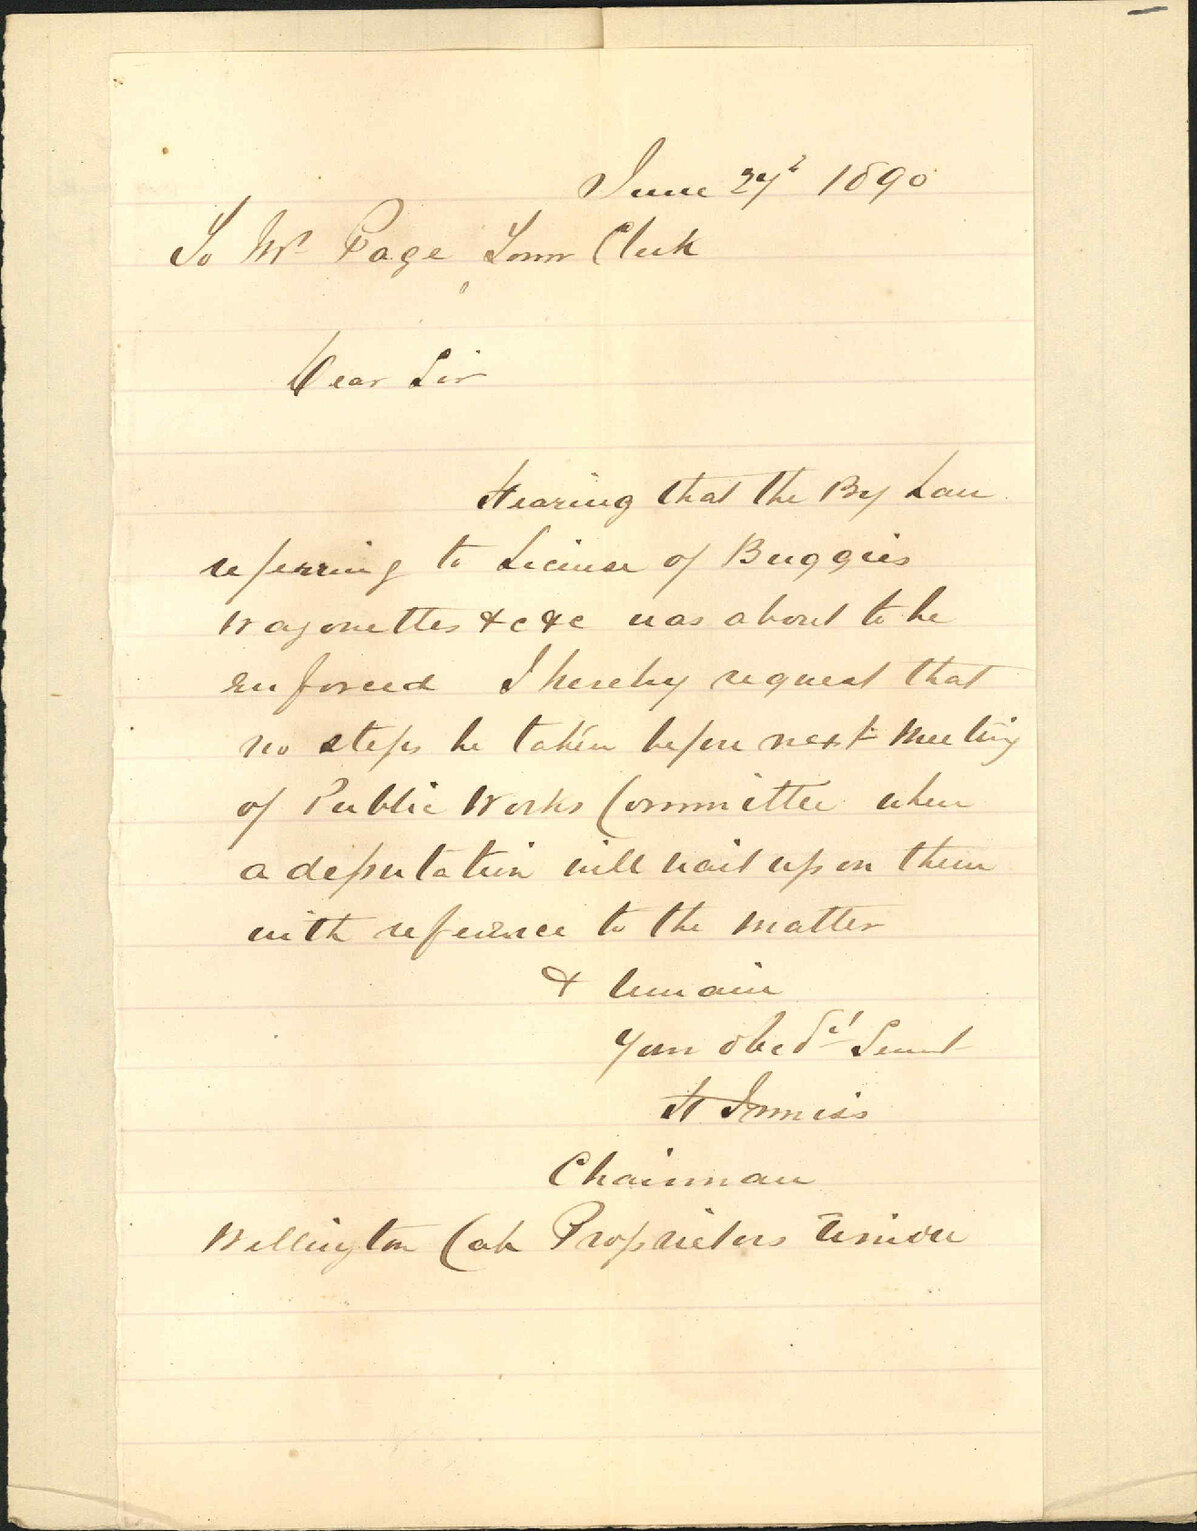 June 27th 1890
To Mr Page Town Clerk
Dear Sir
Hearing that the By Law
referring to License of Buggies
Wagonettes &c &c was about to be
enforced I hereby request that
no steps be taken before next Meeting
of Public Works Committee when
a deputation will wait upon them
with reference to the matter
& remain
Your obedt Servt
H Inniss
Chairman
Wellington Cab Proprietors Union